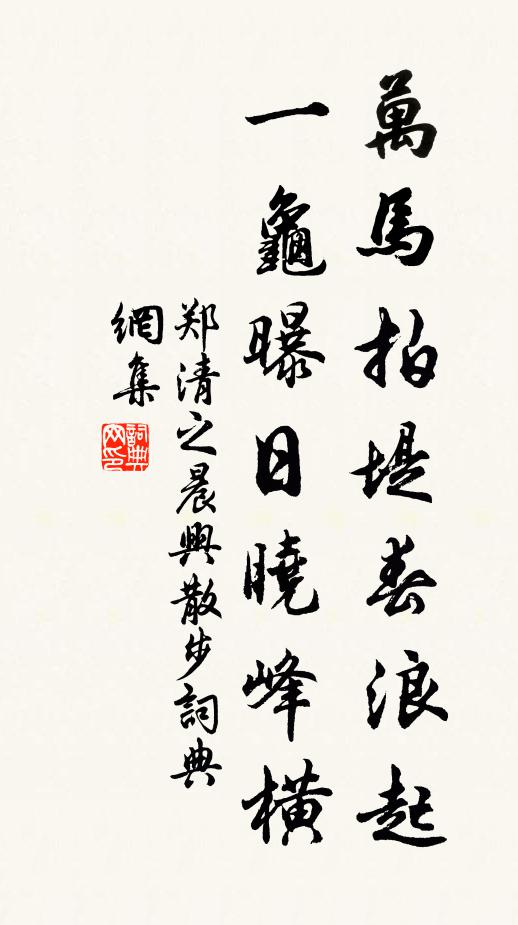 萬馬拍堤春浪起
一龜曝日曉峰橫
郑清之晨興散步詞典
網集
詞典网印